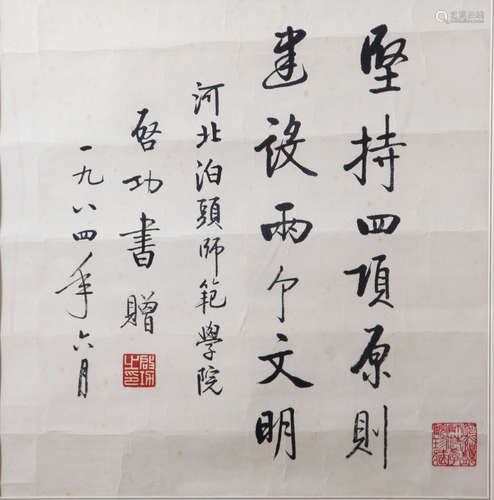 堅持四項原則
建設兩个文明
河北泊頭師範學院
啓功書贈
一九八四年六月
啟功
之印